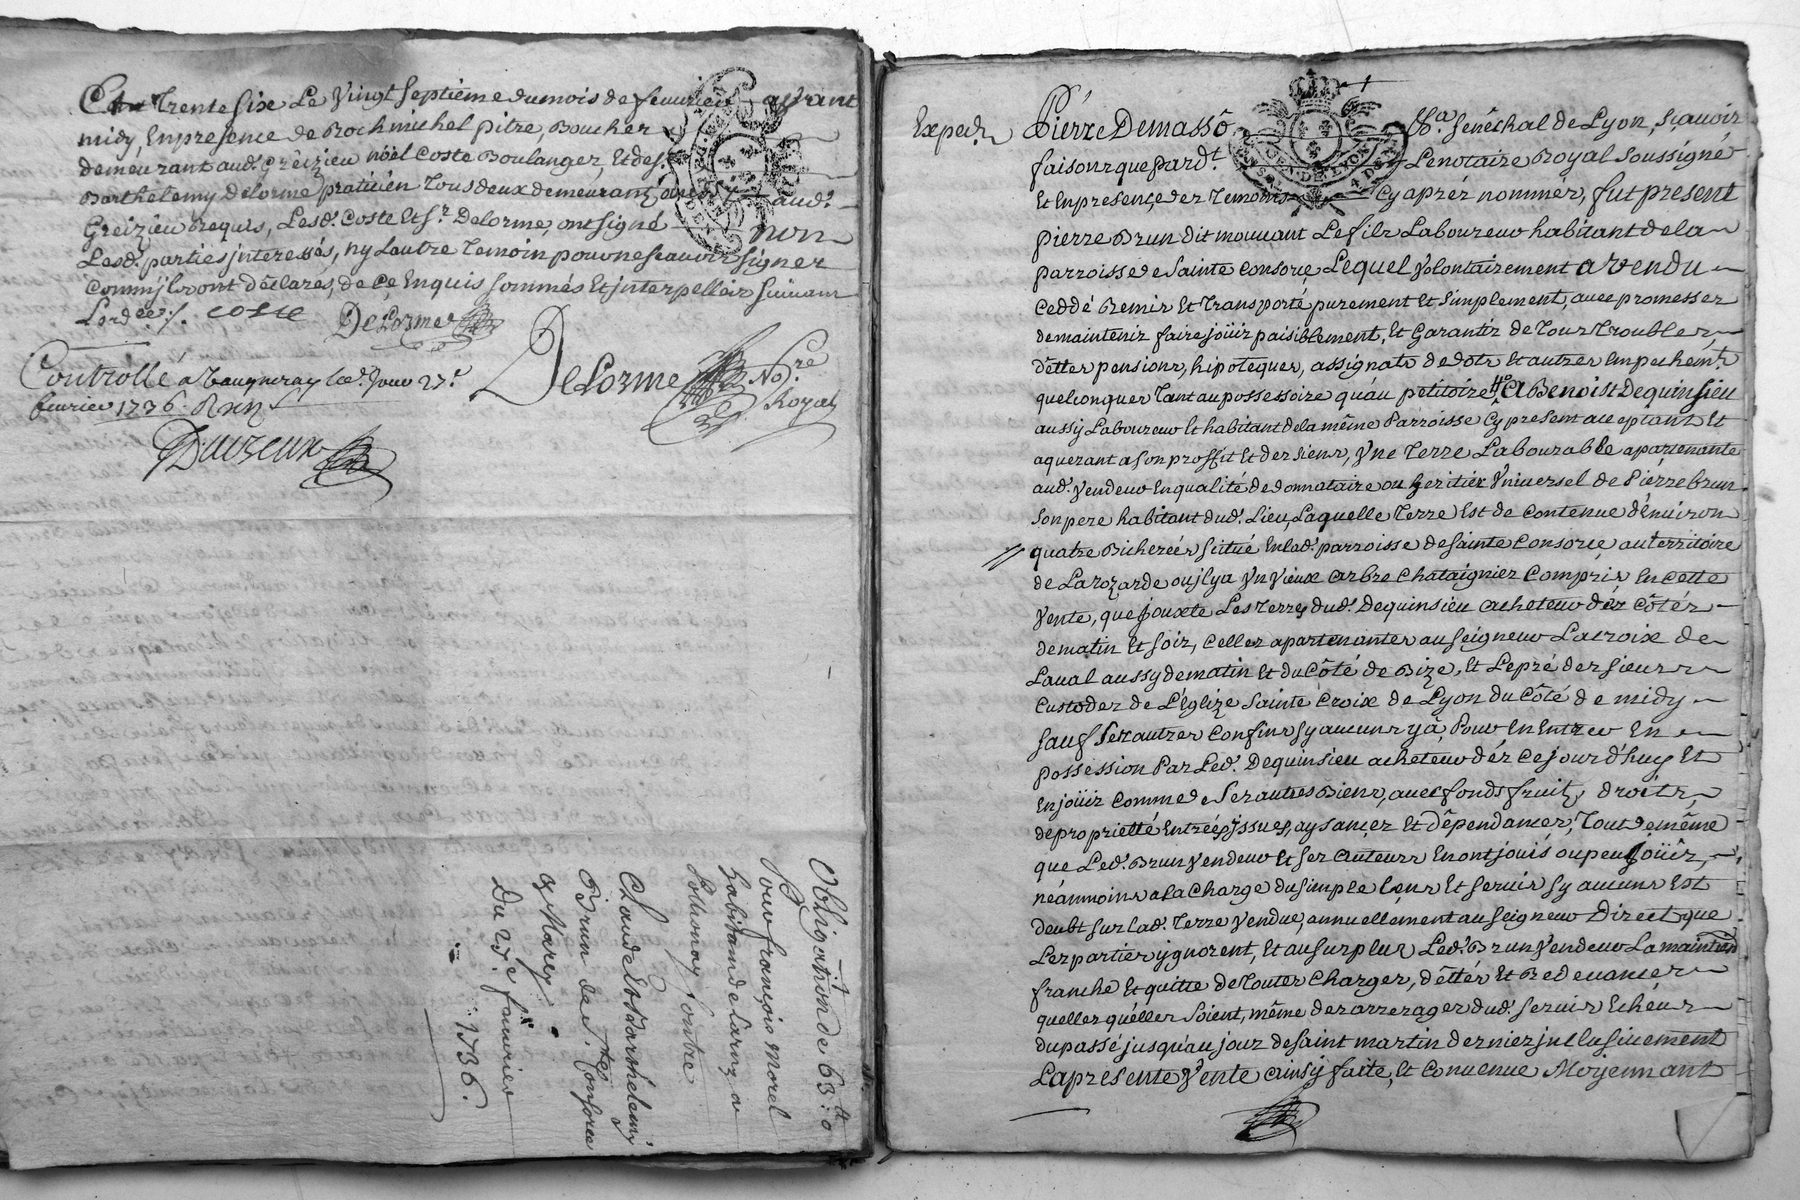 Cent Trente Six Le Vingt Septiême du mois de feuvrier avant
midy, En presence de Roch michel Pitre, Boucher
demeurant aud. Greizieu noël Coste Boulanger, Et de s.r
Barthelemy Delorme praticien Tous deux demeurant aud.
Greizieu Requis, Lesd. Coste Et S.r Delorme, ont signé non
Lesd. parties jnteressés, ny Lautre Temoin pour ne scauoir signer
Comm'jls ont déclares, de Ce Enquis sommés Et jnterpellés suivant
Lord.ce /. COSTE DeLorme
DeLorme No.re
Royal
Controllé a Vaugneray led. Jour 27.e
feurier 1736. Rxn
Dutreux
Obligation de 63:tt 0
Pour françois morel
habitand de Larnz a
Pollionay Contre
Claude Et Barthelemy
Brun de S.tes Consorce
& Marcy
Du 27.e feuvrier
1736.
Exped.
Pierre Demasso S.al Sénéchal de Lyon, sçauoir
faisons que pard.t Le notaire Royal Soussigné
Et En presençe des Temoins Cy aprés nommés, fut present
pierre Brun dit mouuant Le fils Laboureur habitant de la
parroisse de Sainte Consorce Lequel Volontairement a vendu
Ceddé Remis Et Transporté purement Et simplement, auec promesses
de maintenir faire joüir paisiblement, Et Garantir de Tous Troubles
dêttes pensions, hipoteques, assignats de dots Et autres Empechem.ts
quelconques Tant au possessoire qu'au petitoire, A Benoist Dequinsieu
aussy Laboureur Et habitant de la même Parroisse Cy present acceptant Et
aquerant a son proffit Et des siens, Vne Terre Labourable apartenante
aud. Vendeur En qualité de donnataire ou heritier Vniversel de Pierre brun
son pere habitant dud. Lieu, Laquelle Terre Est de Contenue d'enuiron
quatre Bicherées Scitué En lad. parroisse de Sainte Consorce au territoire
de La rozarde ou jl y a Vn Vieux arbre Chataignier Compris En cette
Vente, que jouxte Les Terres dud. Dequinsieu acheteur des Côtés
de matin Et soir, Celles apartenantes au seigneur Lacroix de
Laual aussy de matin Et du Côté de Bize, Et Le pré des sieurs
Custodes de L'Eglize Sainte Croix de Lyon du Côté de midy
sauf ses autres Confins sy aucuns y a, Pour En Entrer En
possession Par Led. Dequinsieu acheteur dés Ce jour d'huy Et
En joüir Comme de Ses autres Biens, auec fonds fruits, droits,
de proprietté Entrées, jssues, aysances Et dépendances, Tout de même
que Led. Brun Vendeur Et ses auteurs En ont jouis ou peu joüir,
néanmoins a la Charge du simple Cens Et seruis sy aucuns Est
deubt sur lad. Terre Vendue, annuellement au seigneur Direct que
Les parties ygnorent, Et au surplus Led. Brun Vendeur La maintien
franche Et quitte de Toutes Charges, dêttes Et Redeuances
quelles qu'elles soient, même des arrerages dud. seruis Echeus
du passé jusqu'au jour de saint martin dernier jnclusiuement
La presente Vente ainsy faite, Et Conuenue Moyennant